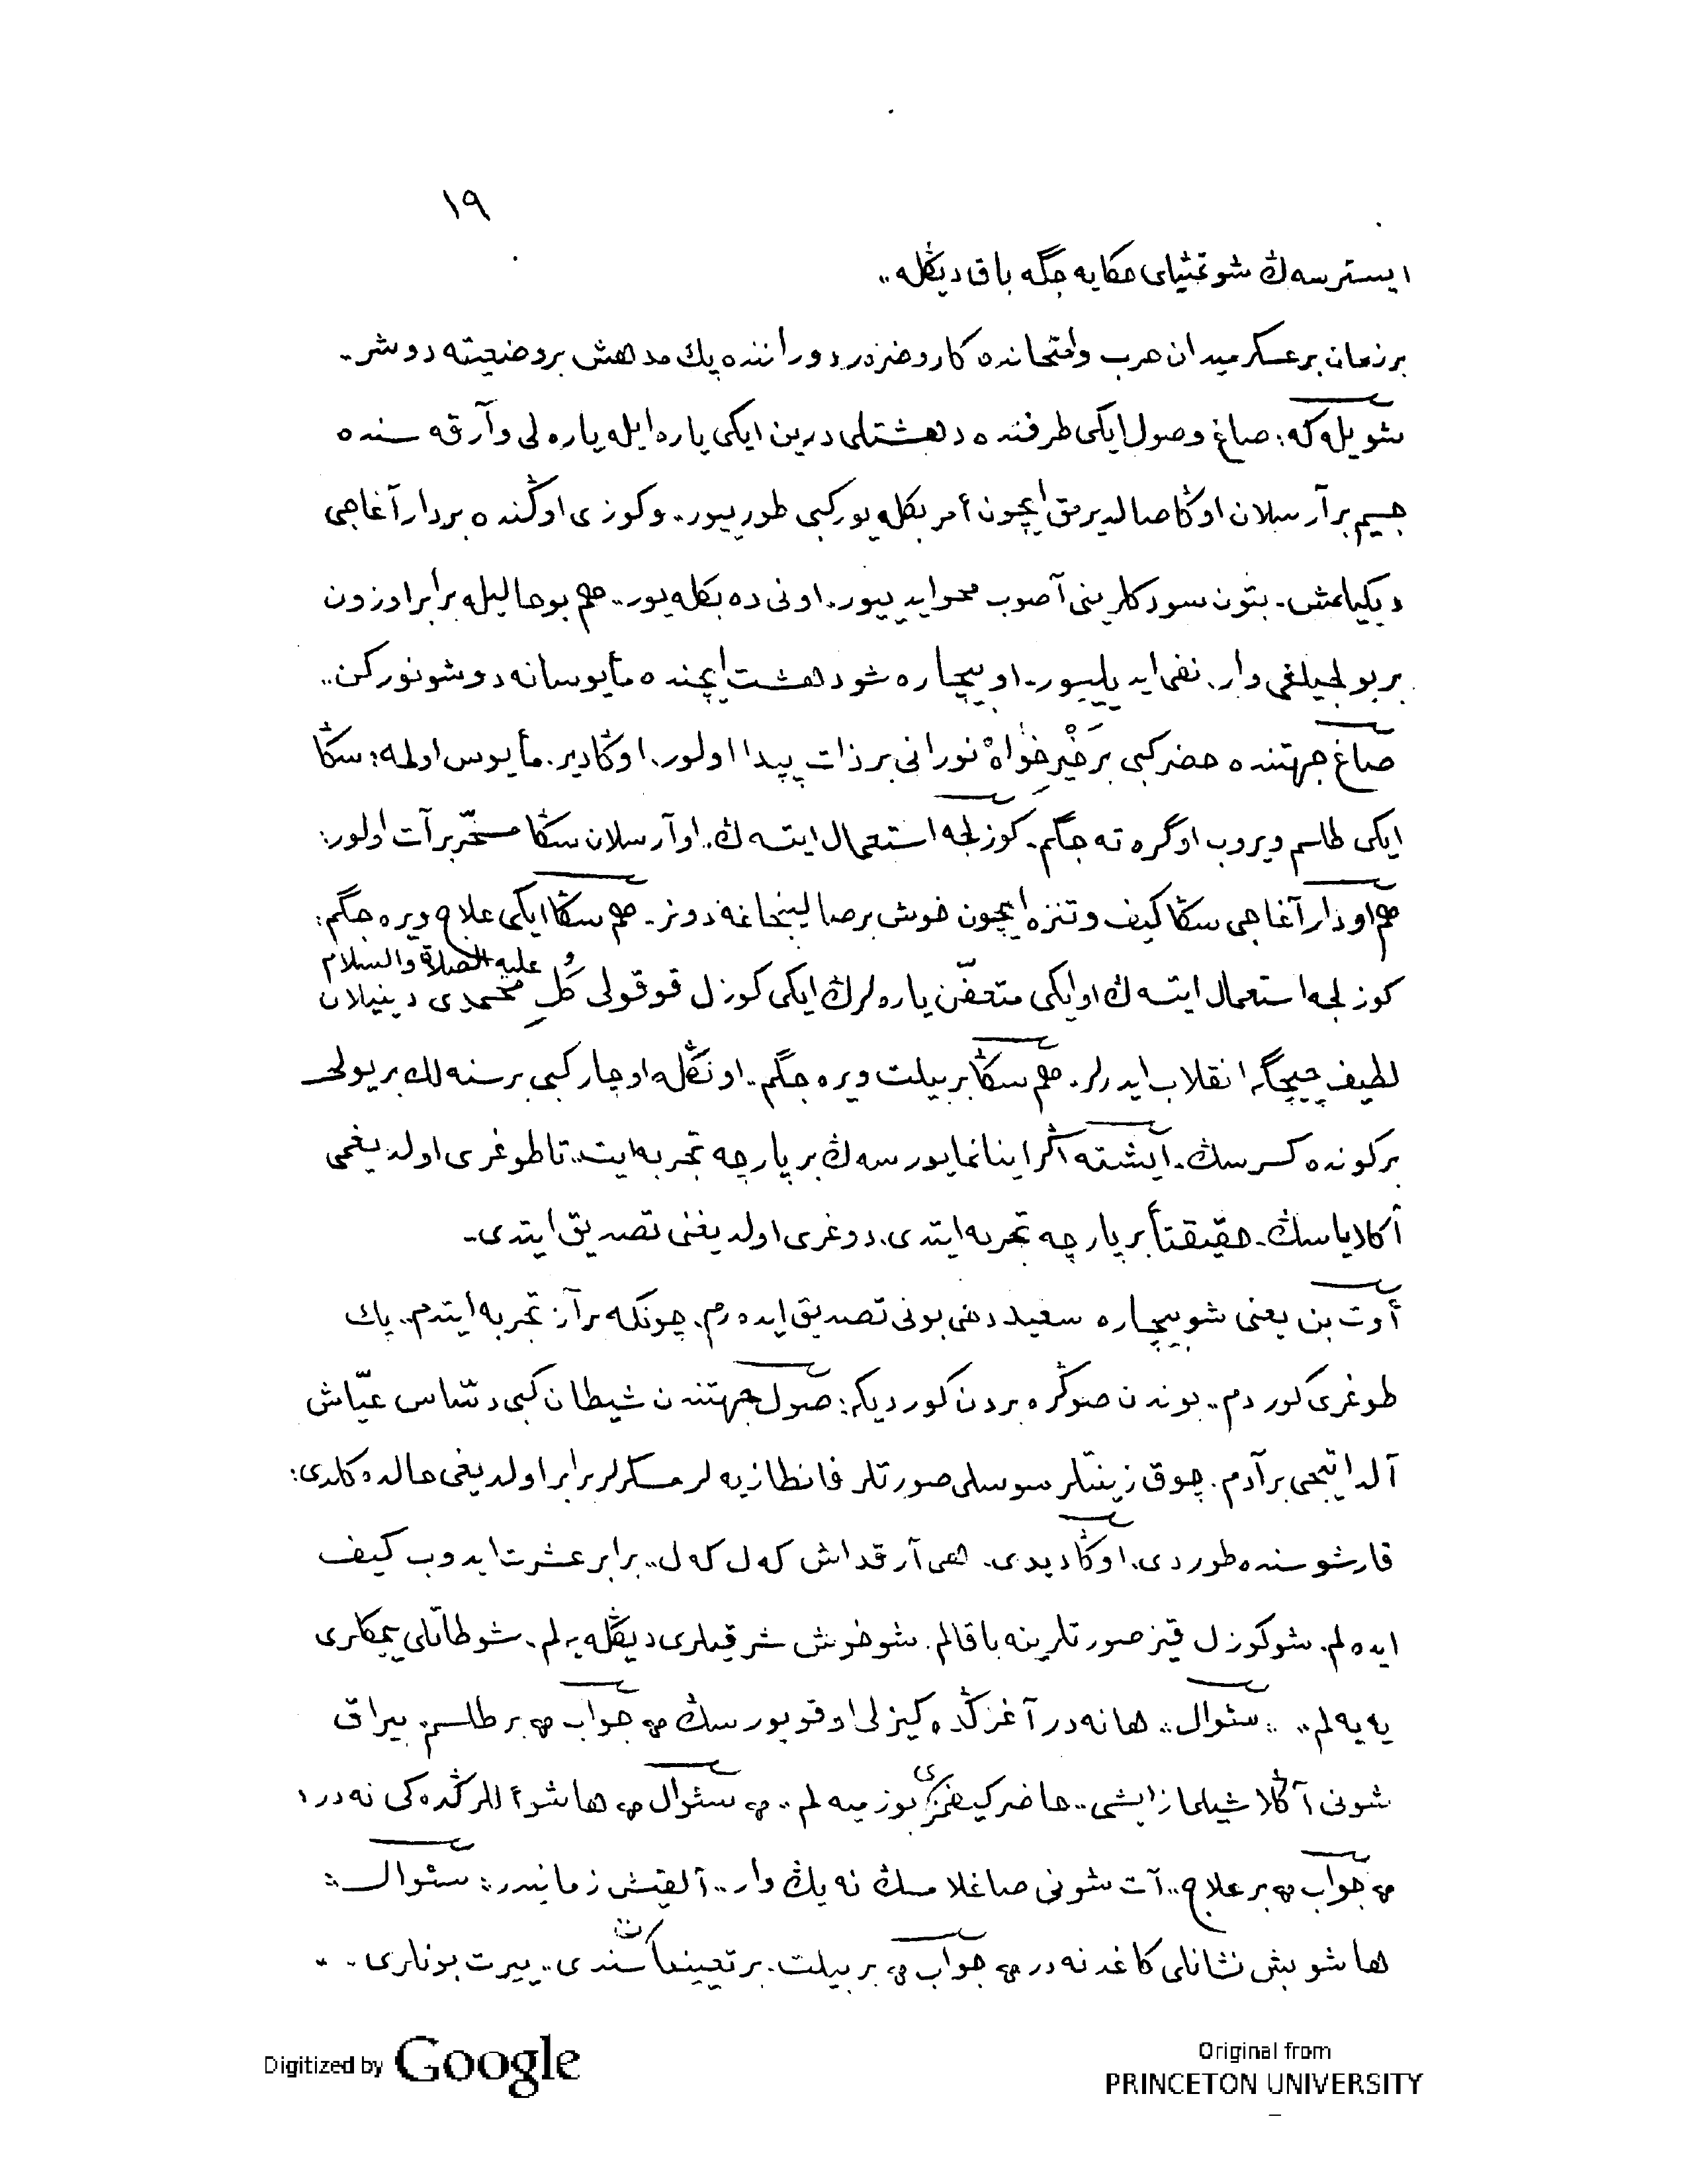 ١٩
ایسترسه‌ڭ شو تمثیلی حكایه‌جگه باق دیڭله..
بر زمان بر عسكر میدان حرب وامتحانده كار وضرر دوراننده پك مدهش بر وضعیته دوشر.
شویله كه: صاغ وصول ایكی طرفنده دهشتلی درین ایكی یاره ایله یاره‌لی وآرقه‌سنده
جسیم بر آرسلان اوڭا صالدیرمق ایچون أمر بكله‌یور كبی طورییور. وكوزی اوڭنده بر دار آغاجی
دیكیلمش. بتون سودكلرینی آصوب محو ایدییور. اونی ده بكله‌یور.. هم بو حالیله برابر اوزون
بر یولجیلغی وار. نفی ایدیلییور. او بیچاره شو دهشت ایچنده مأیوسانه دوشونوركن..
صاغ جهتنده خضر كبی بَر خَیْر خٰواهْ نورانی بر ذات پیدا اولور. اوڭا دیر. مأیوس اولمه: سڭا
ایكی طلسم ویروب اوگره‌ته‌جگم. كوزلجه استعمال ایتسه‌ڭ. او آرسلان سڭا مسخّر بر آت اولور:
هم او دار آغاجی سڭا كیف وتنزه ایچون خوش بر صالینجاغه دونر. هم سڭا ایكی علاج ویره‌جگم:
كوزلجه استعمال ایتسه‌ڭ او ایكی متعفّن یاره‌لرڭ ایكی كوزل قوقولی گُلِ محمدی علیه الصلاة والسلام دینیلان
لطیف چیچگه انقلاب ایدرلر. هم سڭا بر بیلت ویره‌جگم.. اونڭله اوچار كبی بر سنه‌لك بر یولی
بر كونده كسرسڭ. ایشته اگر اینانمایورسه‌ڭ بر پارچه تجربه ایت.. تا طوغری اولدیغی
آڭلایاسڭ. حقیقتاً بر پارچه تجربه ایتدی. دوغری اولدیغنی تصدیق ایتدی.
أوت بن یعنی شو بیچاره سعید دخی بونی تصدیق ایده‌رم. چونكه بر آز تجربه أیتدم.. پك
طوغری كوردم.. بوندن صوگره بردن كوردیكه: صول جهتندن شیطان كبی دسّاس عیّاش
آلداتیجی بر آدم. چوق زینتلر سوسلی صورتلر فانطازیه‌لر مسكرلر برابر اولدیغی حالده كلدی:
قارشوسنده طوردی. اوڭا دیدی. هی آرقداش كه‌ل كه‌ل.. برابر عشرت ایدوب كیف
ایده‌لم. شو كوزل قیز صورتلرینه باقالم. شو خوش شرقیلری دیڭله‌یه‌لم. شو طاتلی یمكلری
ییه‌لم.. :: سئوال :: ها نه‌در آغزڭده كیزلی اوقویورسڭ جواب بر طلسم. بیراق
شونی آڭلاشیلماز ایشی.. حاضر كیفمزی بوزمیه‌لم.. سئوال ها شو أللرڭده‌كی نه‌در ؛
جواب بر علاج.. آت شونی صاغلامسڭ نه‌یڭ وار.. آلقیش زمانیدر :: سئوال ::
ها شو بش نشانلی كاغد نه‌در جواب بر بیلت. بر تعیینات سندی.. ییرت بونلری. .
Digitized by Google
Original from
PRINCETON UNIVERSITY